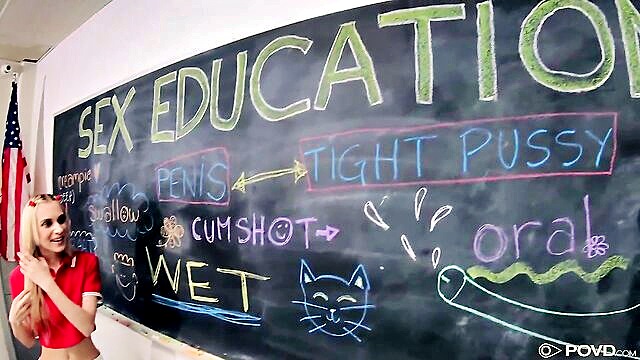 SEX EDUCATION
creampie
PENIS
TIGHT PUSSY
Swallow
CUMSHOT
oral
WET
POVD.COM